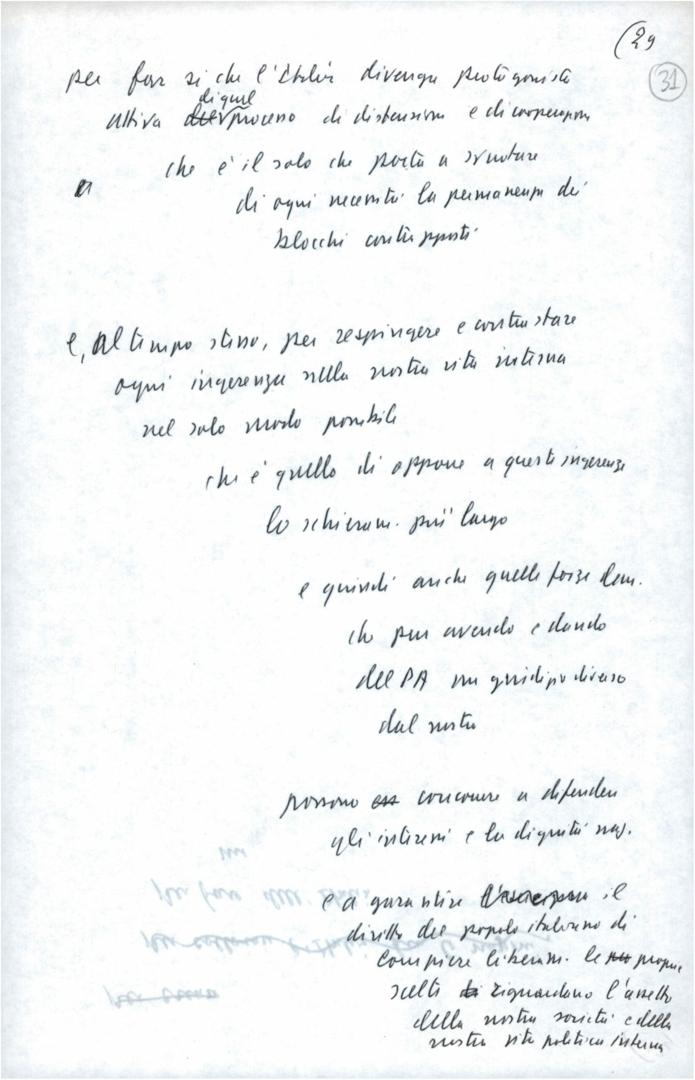 (29
31
per far sì che l'Italia divenga protagonista
di quel
attiva del processo di distensione e di cooperazione
che è il solo che porta a svuotare
di ogni necessità la permanenza dei
blocchi contrapposti
e, al tempo stesso, per respingere e contrastare
ogni ingerenza nella nostra vita interna
nel solo modo possibile
che è quello di opporre a queste ingerenze
lo schieram. più largo
e quindi anche quelle forze dem.
che pur avendo e dando
del PA un giudizio diverso
dal nostro
possono ess concorrere a difendere
gli interessi e la dignità naz.
e a garantire il
diritto del popolo italiano di
compiere liberam. le proprie
scelte riguardano l'assetto
della nostra società e della
nostra vita politica interna